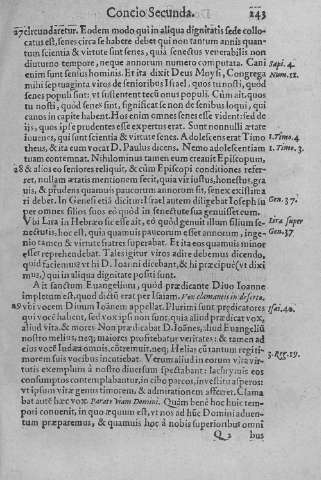 Concio Secunda. 243
27 circundaretur. Eodem modo qui in aliqua dignitatis sede collo-
catus est, senes circa se habere debet qui non tantum annis quan-
tum scientia & virtute sint senes, quia senectus venerabilis non
diuturno tempore, neque annorum numero computata. Cani Sapi. 4.
enim sunt sensus hominis. Et ita dixit Deus Moysi, Congrega Num. 11.
mihi septuaginta viros de senioribus Israel. quos tu nosti, quod
senes populi sint: vt sustentent tecū onus populi. Cùm ait. quos
tu nosti, quòd senes sint, significat se non de senibus loqui, qui
canos in capite habent. Hos enim omnes senes esse vident: sed de
ijs, quos ipse prudentes esse expertus erat. Sunt nonnulli ætate
iouenes, qui sunt scientia & virtute senes. Adolescens erat Timo 1. Timo. 4
theus, & ita eum vocat D. Paulus dicens. Nemo adolescentiam 1. Timo. 3.
tuam contemnat. Nihilominus tamen eum creauit Episcopum,
28 & alios eo seniores reliquit, & cùm Episcopi conditiones refer-
ret, nullam ætatis mentionem fecit, quia vir iustus, honestus, gra
uis, & prudens quamuis paucorum annorum sit, senex existima
ri debet. In Genesi etiā dicitur Israel autem diligebat Ioseph su Gen. 37.
per omnes filios suos eò quòd in senectute sua genuisset eum.
Vbi Lira in Hebræo sic esse ait, eò quòd genuit illum filium se- Lira super
nectutis, hoc est, quia quamuis paucorum esset annorum, inge- Gen. 37
nio tamen & virtute fratres superabat. Et ita eos quamuis minor
esset reprehendebat. Tales igitur viros adire debemus dicendo,
quid faciemus? vt hi D. Ioanni dicebant, & hi præcipuè (vt dixi
mus,) qui in aliqua dignitate positi sunt.
A it sanctum Euangelium, quòd prædicante Diuo Ioanne
impletum est, quod dictū erat per Isaiam. Vox clamantis in deserto.
29 vbi vocem Diuum Ioānem appellat. Plurimi sunt prædicatores Isai. 40.
qui vocē habent, sed vox ipsi non sunt, quia aliud prædicat vox,
aliud vita & mores. Non prædicabat D. Ioānes, aliud Euangeliū
nostro melius, neq; maiores profitebatur veritates: & tamen ad
eius vocē Iudæa omnis cōtremuit, neq; Helias cū tantum regis 3. Reg. 19.
morem suis vocibus incutiebat. Verum aliud in eorum vita vir-
tutis exemplum à nostro diuersum spectabant: lachrymis eos
consumptos contemplabantur, in cibo parcos, in vestitu asperos:
vt ipsum vitæ genus timorem, & admirationem afferret. Clama
bat autē hæc vox. Parate viam Domini. Quàm benè hoc huic tem-
pori conuenit, in quo æquum est, vt nos ad hūc Domini aduen-
tum præparemus, & quamuis hoc à nobis superioribus omni
Q 2 bus